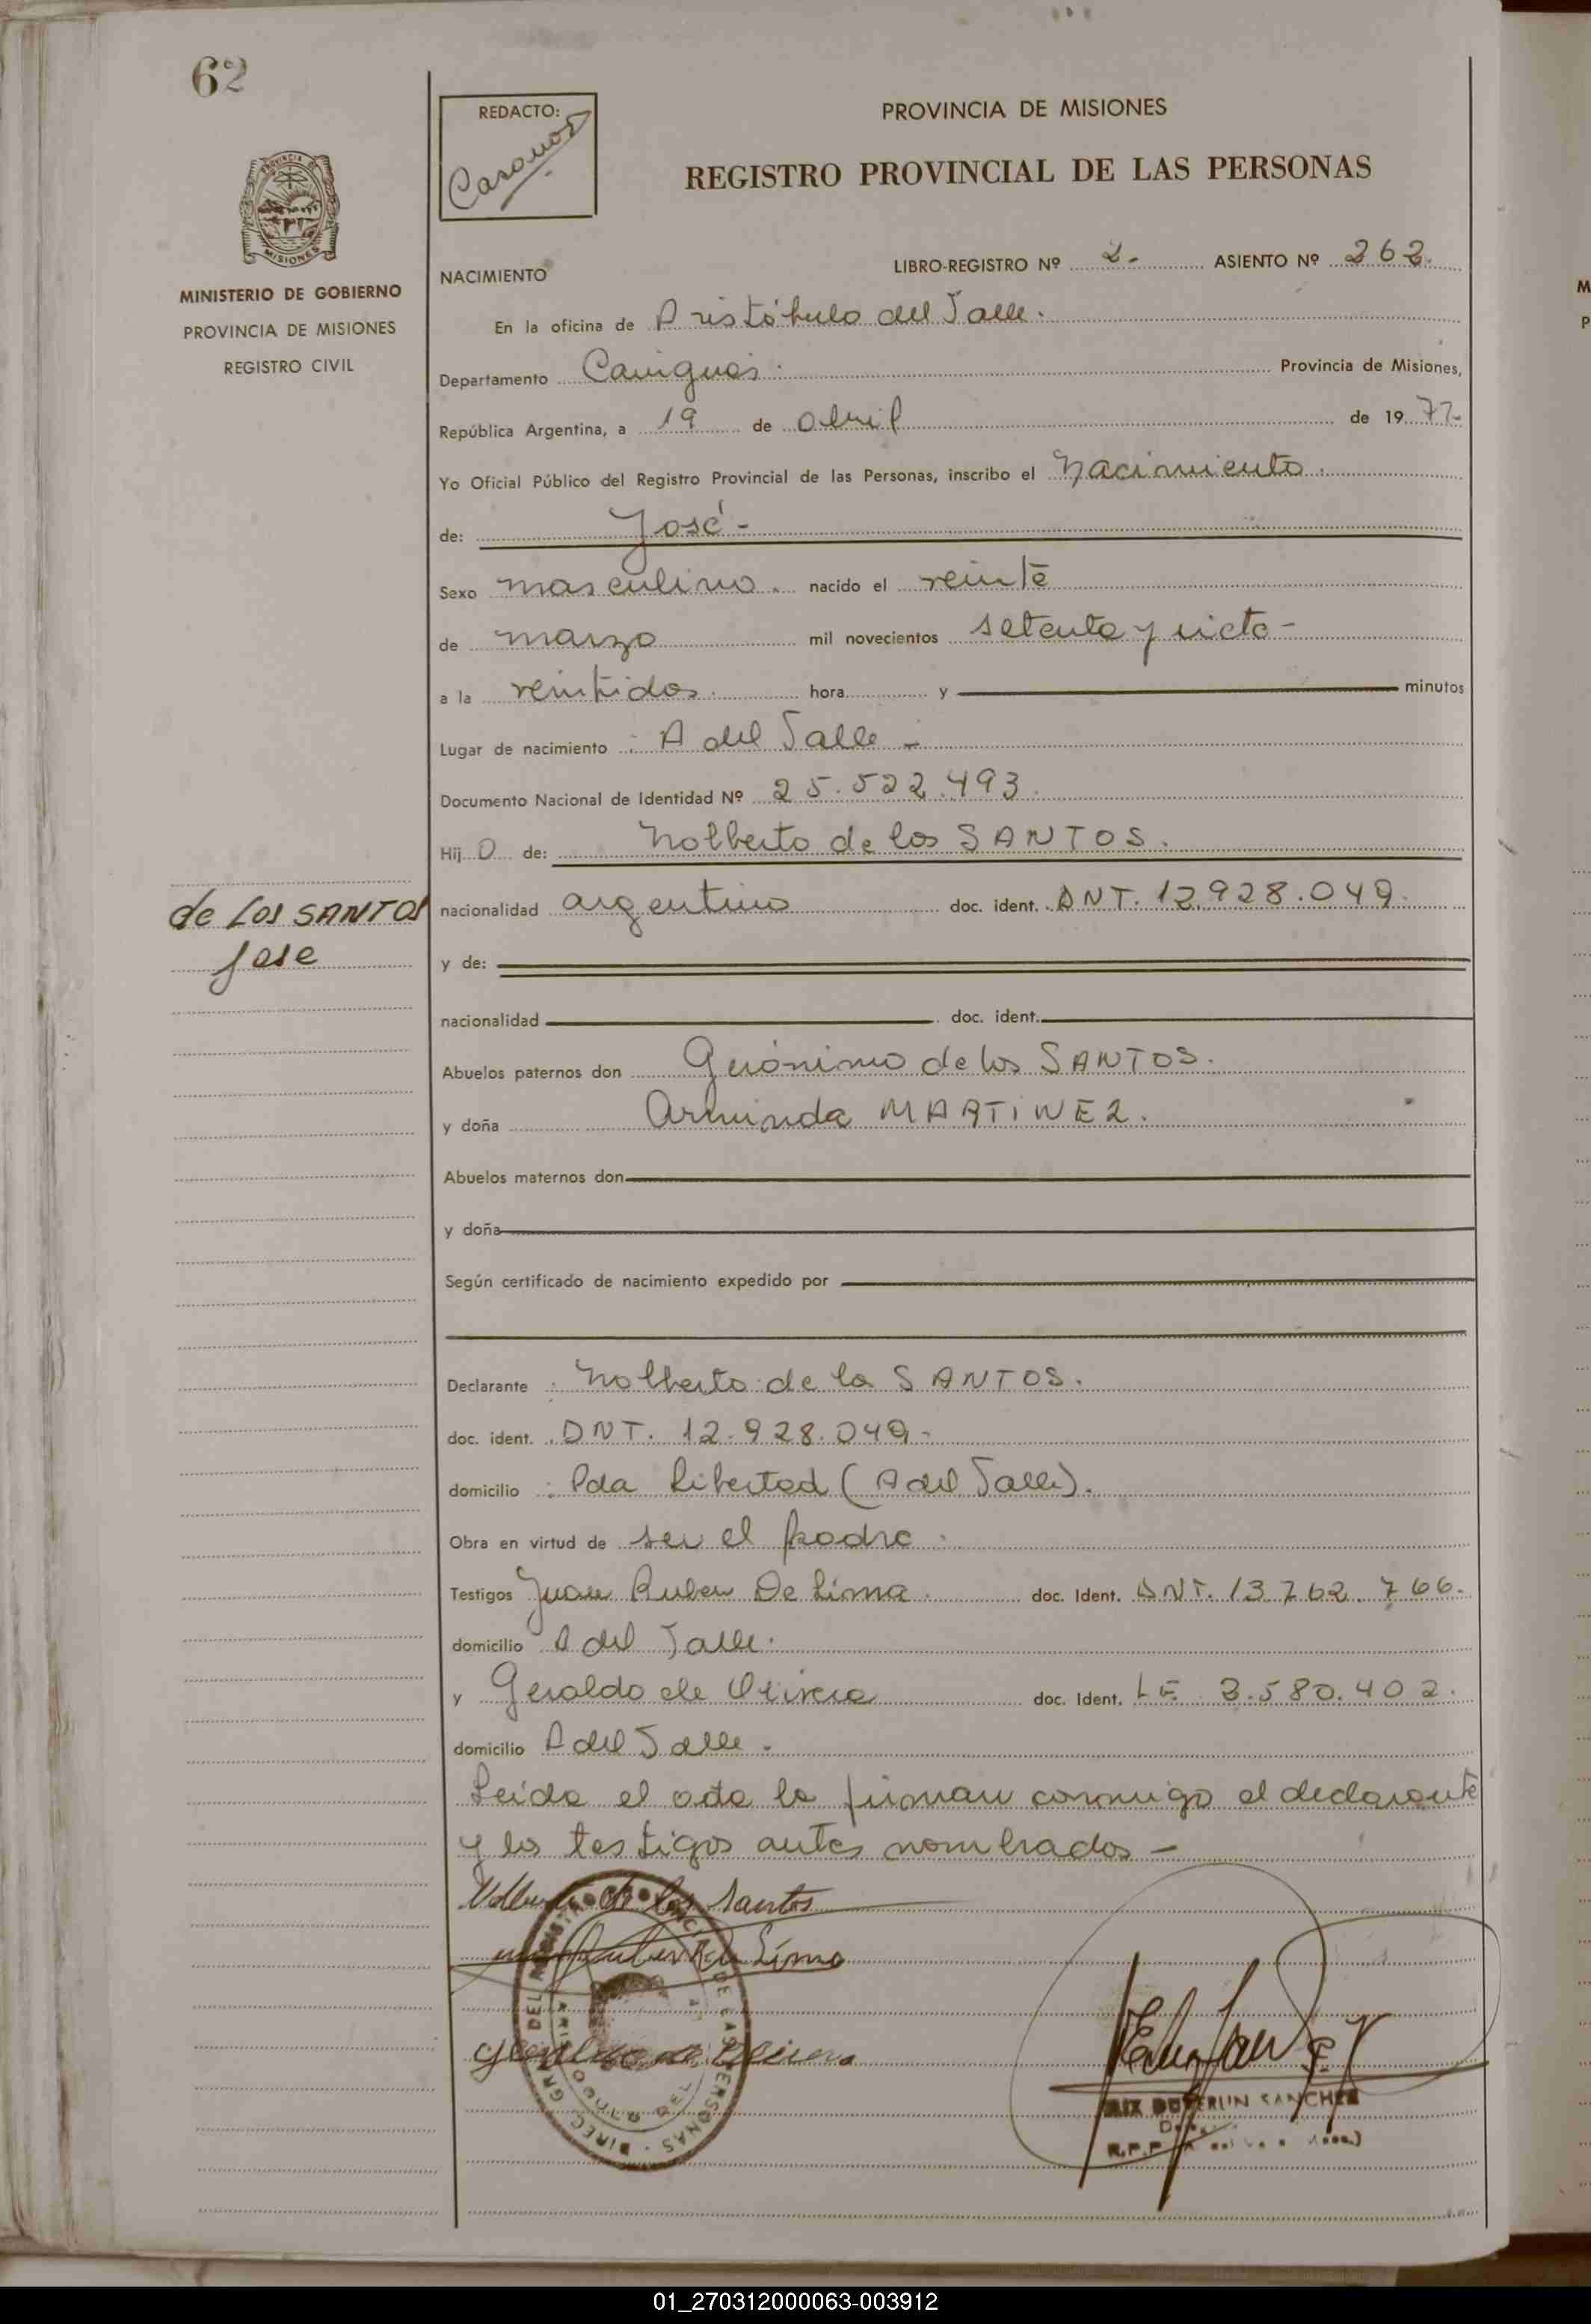 62
REDACTO:
PROVINCIA DE MISIONES
REGISTRO PROVINCIAL DE LAS PERSONAS
MISIONES
MINISTERIO DE GOBIERNO
PROVINCIA DE MISIONES
REGISTRO CIVIL
NACIMIENTO
LIBRO-REGISTRO Nº 2.- ASIENTO Nº 262.
En la oficina de Aristóbulo del Valle.
Departamento Cainguás. Provincia de Misiones,
República Argentina, a 19 de abril de 1977-
Yo Oficial Público del Registro Provincial de las Personas, inscribo el Nacimiento.
de: José -
Sexo masculino. nacido el veinte
de marzo mil novecientos setenta y siete -
a la veintidos. hora y minutos
Lugar de nacimiento : A del Valle -
Documento Nacional de Identidad Nº 25.522.493.
Hij o de: Nolberto de los SANTOS.
de Los SANTOS
Jose
nacionalidad argentino doc. ident. DNT. 12.928.049.
y de:
nacionalidad doc. ident.
Abuelos paternos don Gerónimo de los SANTOS.
y doña Arminda MARTINEZ.
Abuelos maternos don
y doña
Según certificado de nacimiento expedido por
Declarante : Nolberto de los SANTOS.
doc. ident. DNT. 12.928.049-
domicilio : Pda Libertad (A del Valle).
Obra en virtud de ser el padre.
Testigos Juan Ruben De Lima. doc. Ident. DNT. 13.762.766.
domicilio A del Valle.
y Geraldo de doc. Ident. LE 3.580.402.
domicilio A del Valle.
Leida el acta la firman conmigo el declarante
y los testigos antes nombrados -
de los Santos
Ruben De Lima
SANCHEZ
01_270312000063-003912